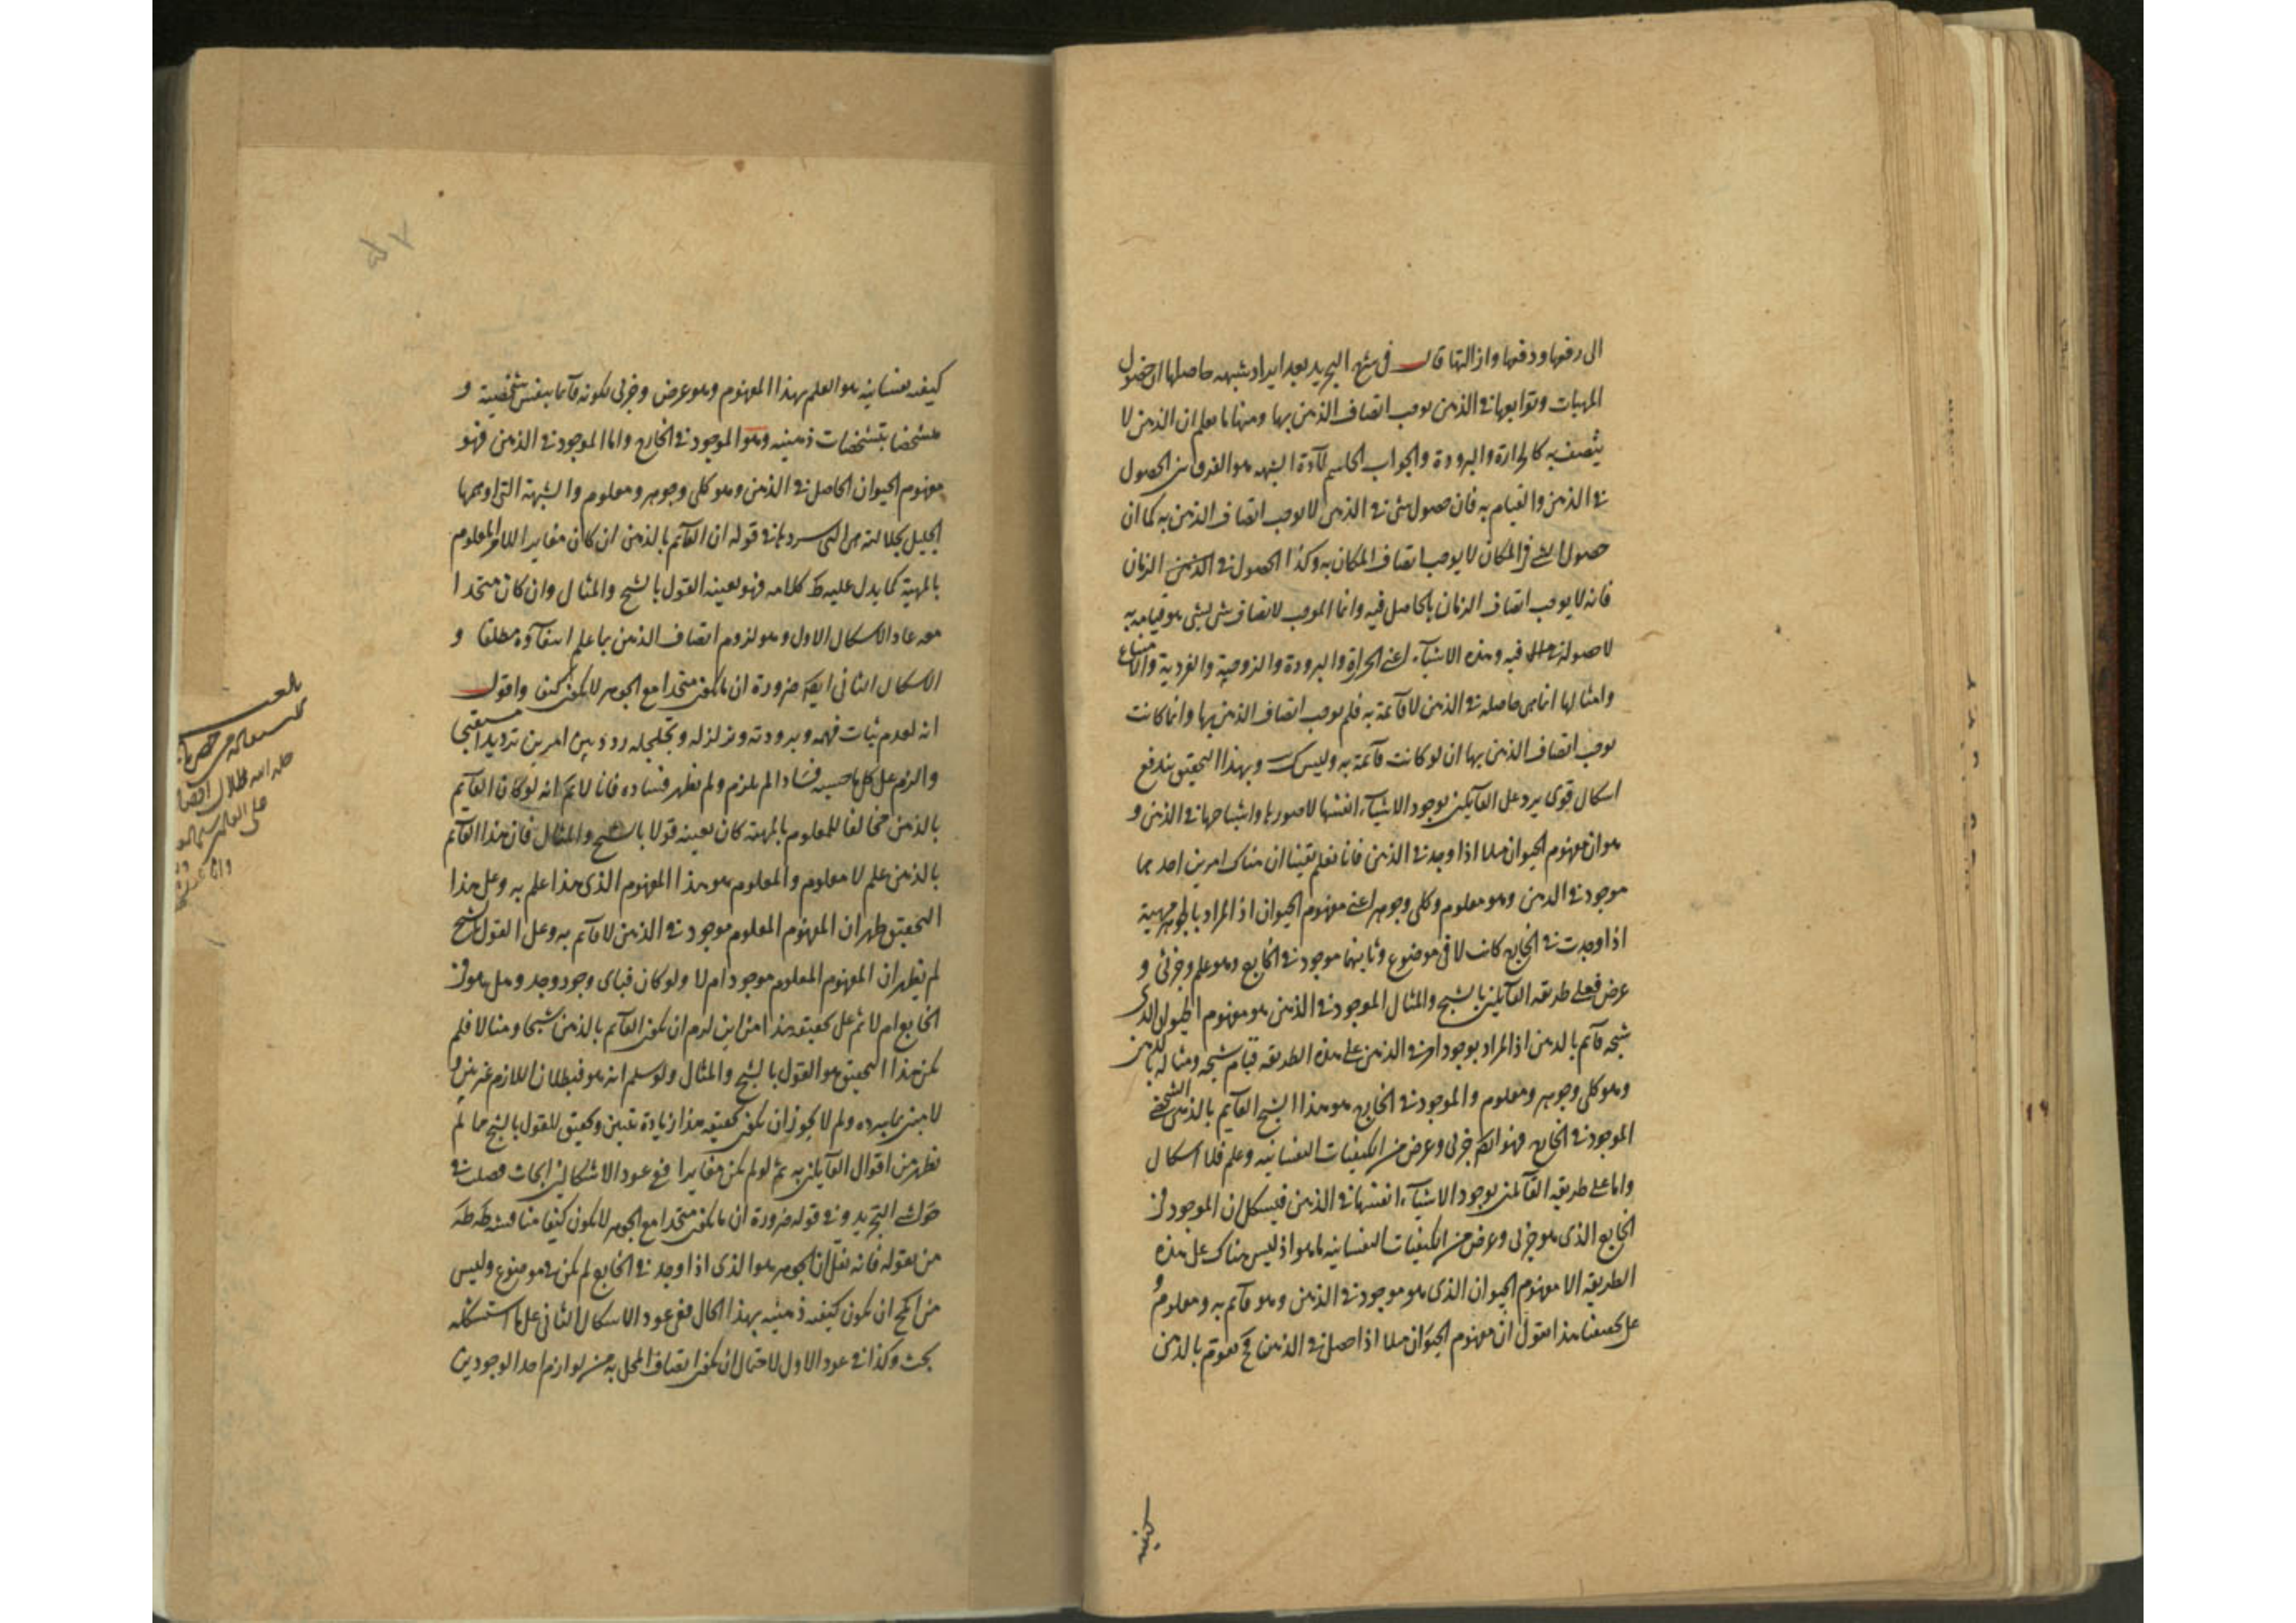 الى رفعها ودفعها وازالتها قال في شرح التجريد بعد ايراد شبهه حاصلها ان حصول
المهيات وتوابعها في الذهن يوجب اتصاف الذهن بها ومنها ما يعلم ان الذهن لا
يتصف به كالحرارة والبرودة والجواب الحاسم لمآدة الشبهه هو الفرق بين الحصول
في الذهن والقيام به فان حصول شئ في الذهن لا يوجب اتصاف الذهن به كما ان
حصول الشئ في المكان لا يوجب اتصاف المكان به وكذا الحصول في الزمان
فانه لا يوجب اتصاف الزمان بالحاصل فيه وانما الموجب لاتصاف شئ بشئ هو قيامه به
لا حصوله فيه وهذه الاشيآء اعني الحرارة والبرودة والزوجية والفردية والامتناع
وامثالها انما هي حاصله في الذهن لا قآئمة به فلم يوجب اتصاف الذهن بها وانما كانت
يوجب اتصاف الذهن بها ان لو كانت قآئمة به وليس ك وبهذا التحقيق يندفع
اشكال قوي يرد على القآئلين بوجود الاشيآء انفسها لا صورها واشباحها في الذهن و
هو ان مفهوم الحيوان مثلا اذا وجد في الذهن فانا نعلم يقينا ان هناك امرين احدهما
موجود في الذهن وهو معلوم وكلي وجوهر اعني مفهوم الحيوان اذ المراد بالجوهر مهية
اذا وجدت في الخارج كانت لا في موضوع وثانيهما موجود في الخارج وهو علم وجزئي و
عرض فعلى طريقه القآئلين بالشبح والمثال الموجود في الذهن هو مفهوم الحيوان الذي
شبحه قآئم بالذهن اذ المراد بوجود امر في الذهن على هذه الطريقه قيام شبحه ومثاله بالذهن
وهو كلي وجوهر ومعلوم والموجود في الخارج هو هذا الشبح القآئم بالذهن الشخصي
الموجود في الخارج فهو ايضا جزئي وعرض من الكيفيات النفسانيه وعلم فلا اشكال
واما على طريقه القآئلين بوجود الاشيآء انفسها في الذهن فيشكل ان الموجود في
الخارج الذي هو جزئي وعرض من الكيفيات النفسانيه ما هو اذ ليس هناك على هذه
الطريقه الا مفهوم الحيوان الذي هو موجود في الذهن وهو قآئم به ومعلوم و
على تحقيقنا هذا نقول ان مفهوم الحيوان مثلا اذا حصل في الذهن فح يقوم بالذهن
كيفيه
كيفيه نفسانيه هو العلم بهذا المفهوم وهو عرض وجزئي لكونه قآئما بنفس شخصية و
متشخصا بتشخصات ذهنيه وهو الموجود في الخارج واما الموجود في الذهن فهو
مفهوم الحيوان الحاصل في الذهن وهو كلي وجوهر ومعلوم والشبهة التي اوهمها
الجليل بجلالته هي التي سردها في قوله ان القآئم بالذهن ان كان مغايرا للامر المعلوم
بالمهية كما يدل عليه ظ كلامه فهو بعينه القول بالشبح والمثال وان كان متحدا
معه عاد الاشكال الاول وهو لزوم اتصاف الذهن بما علم انتفآؤه مطلقا و
الاشكال الثاني ايضا ضرورة ان ما يكون متحدا مع الجوهر لا يكون كيفا واقول
انه لعدم ثبات فهمه وبرودته وتزلزله وتجلجله ردد بين امرين ترديدا
والزم على كل ما حسبه فسادا لم يلزم ولم يظهر فساده فانا لا نم انه لو كان القآئم
بالذهن مخالفا للمعلوم بالمهية كان بعينه قولا بالشبح والمثال فان هذا القآئم
بالذهن علم لا معلوم والمعلوم هو هذا المفهوم الذي هذا علم به وعلى هذا
التحقيق ظهر ان المفهوم المعلوم موجود في الذهن لا قآئم به وعلى القول بالشبح
لم يظهر ان المفهوم المعلوم موجود ام لا ولو كان فباى وجود وجد وهل هو في
الخارج ام لا ثم على تحقيقه هذا من اين لزم ان يكون القآئم بالذهن شبحا ومثالا فلم
يكن هذا التحقيق هو القول بالشبح والمثال ولو سلم انه هو فبطلان اللازم غير بين و
لا مبين بما يرده ولم لا يجوز ان يكون تحقيقه هذا زيادة تبيين وتحقيق للقول بالشبح ما لم
يظهر من اقوال القآئلين به ثم لو لم يكن مغايرا ففي عود الاشكالين ابحاث فصلت في
حواشي التجريد وفي قوله ضرورة ان ما يكون متحدا مع الجوهر لا يكون كيفا مناقشه
من بقوله فانه نقل ان الجوهر هو الذي اذا وجد في الخارج لم يكن في موضوع وليس
من المح ان يكون كيفيه ذهنيه بهذا الحال ففي عود الاشكال الثاني على ما استشكله
بحث وكذا في عود الاول لاحتمال ان يكون اتصاف المحل به من لوازم احد الوجودين